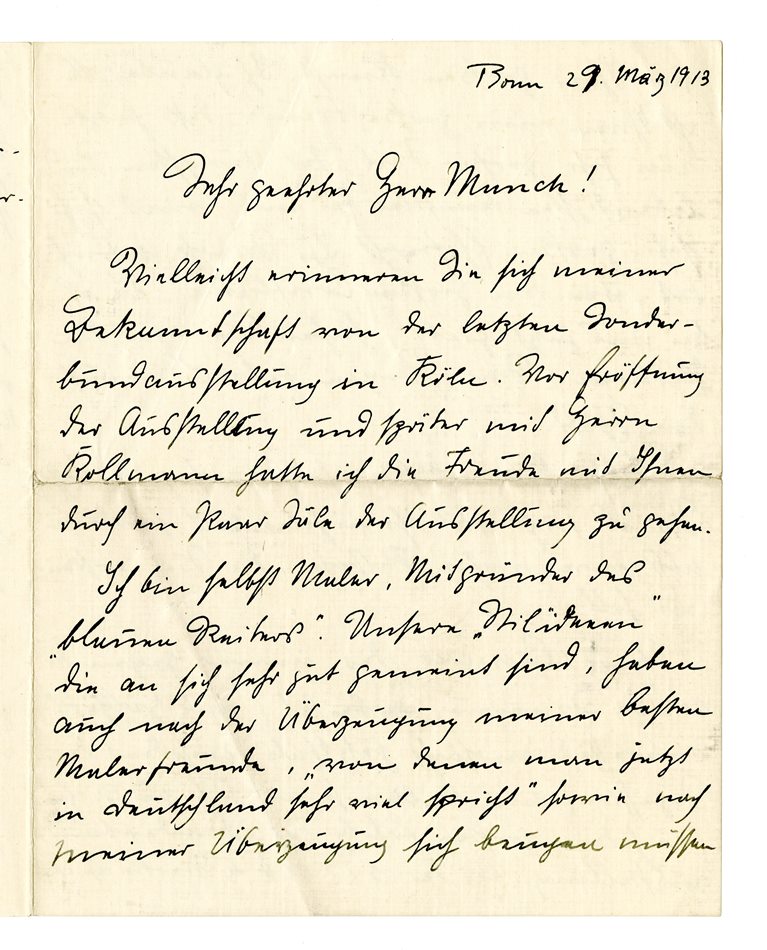 Bonn 29. März 1913
Sehr geehrter Herr Munch!
Vielleicht erinneren Sie sich meiner
Bekanntschaft von der letzten Sonder-
bundausstellung in Köln. Vor Eröffnung
der Ausstellung und später mit Herrn
Kollmann hatte ich die Freude mit Ihnen
durch ein Paar Säle der Ausstellung zu gehen.
Ich bin selbst Maler, Mitgründer des
"blauen Reiters". Unsere „Stilideeen"
die an sich sehr gut gemeint sind, haben
auch nach der Überzeugung meiner besten
Malerfreunde, „von denen man jetzt
in Deutschland sehr viel spricht" sowie nach
meiner Überzeugung sich beugen müssen